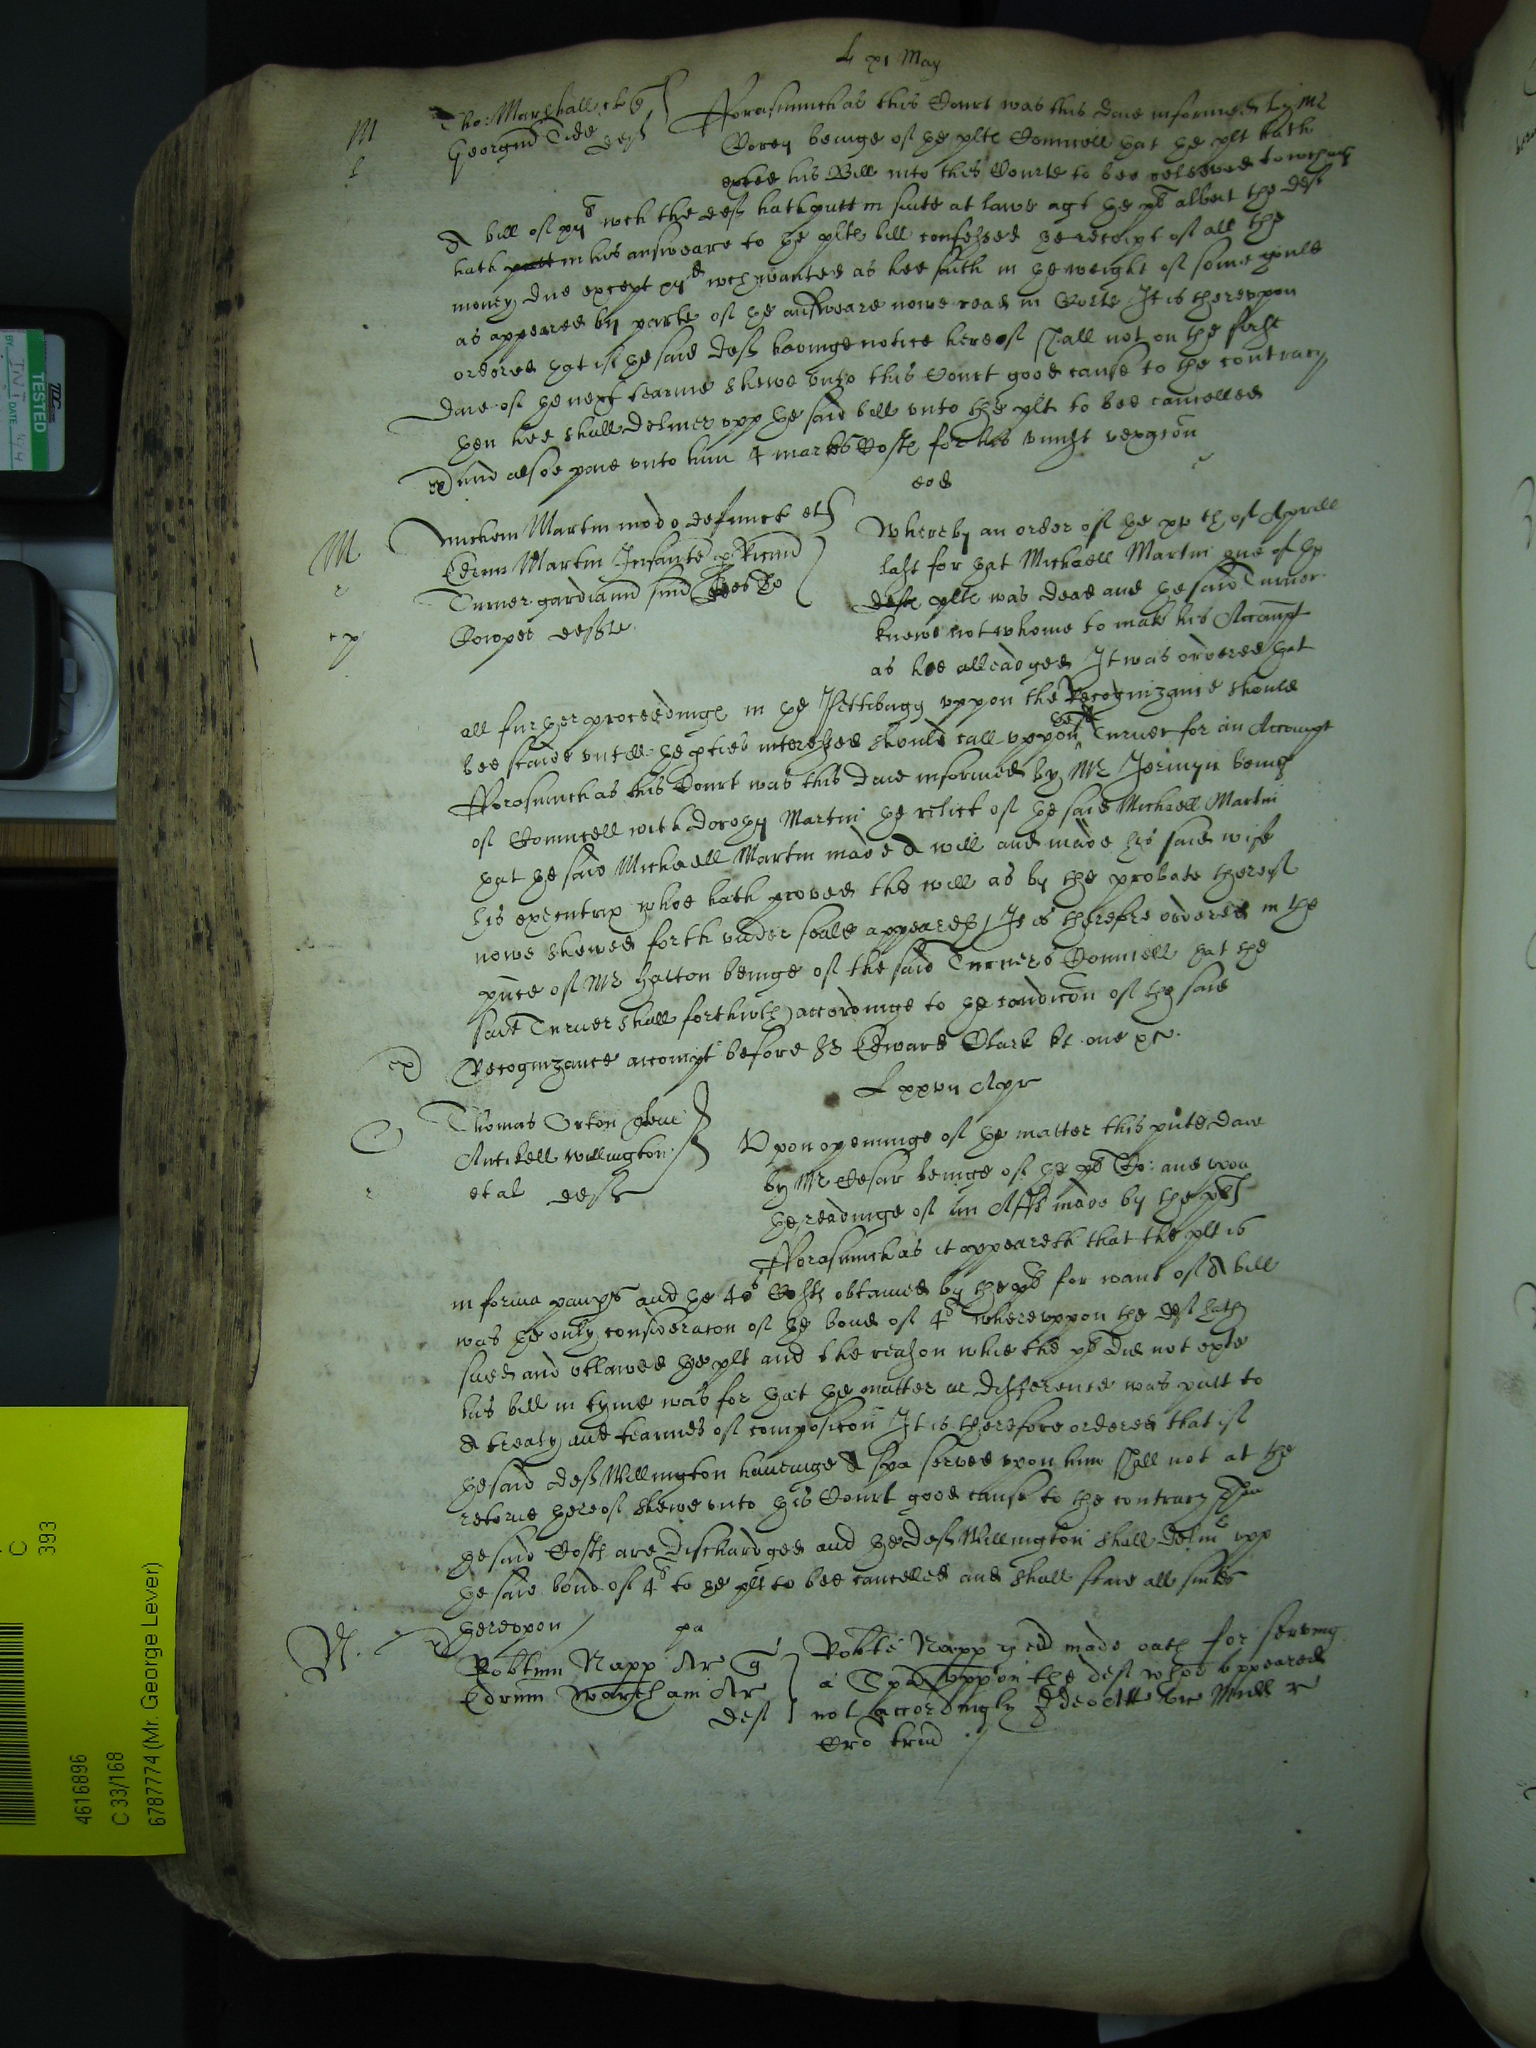 L xi May
M Tho: Marshall
Georgiu Tide deft
Forasmuch as this Court was this daie informed by Mr
beinge of the plts Councell that the plt hath
his Bill into this Courte to bee releived
A bill of wch the deft hath putt in suite at lawe agt the albeit the deft
hath putt in his answeare to the plts bill confessed the receipt of all the
money due except wch wanted as hee saith in the weight of some
as appeared by parte of the answeare nowe read in Courte It is therevpon
ordered that if the said deft havinge notice hereof shall not on the first
daie of the next tearme shewe vnto this Court good cause to the contrary
then hee shall deliuer vpp the said bill vnto the plt to bee cancelled
And alsoe paie vnto him 4 marks Costs for his vniust vexacon
eod
M Martin modo defunct et
Martin Infante p
Turner gardianu suu
Cowper defts
Whereby an order of the xxth of Aprill
last for that Michaell Martin one of the
defts plts was dead and the said Turner
knewe not whome to make his Accompt
as hee alleadged It was ordered that
all further proceedings in the Pettibagg vppon the Recognizance should
bee staied vntill the pties interessed should call vppon the sd Turner for an Accompt
Forasmuch as this Court was this daie informed by Mr Jermyn being
of Councell with Dorothy Martin the relict of the said Michaell Martin
that the said Michaell Martin made a will and made his said wife
his executrix whoe hath proved the will as by the probate thereof
nowe shewed forth vnder seale appeareth It is therefore ordered in the
pnce of Mr Hatton beinge of the said Turners Councell that the
said Turner shall forthwth accordinge to the condicon of the said
Recognizance accompt before Sr Edward Clark kt one &c.
L xxvii Apr
C Thomas Orton
Willington
et al defts
Vpon openinge of the matter this pnte daie
by Mr Cesar beinge of the Co: and vpon
the readinge of an Afft made by the plt
Forasmuch as it appeareth that the plt is
in forma paupis and the 40s Costs obtained by the for want of A bill
was the only consideracon of the bond of 4l wherevppon the deft hath
sued and vtlawed the plt and the reason whie the did not
his bill in tyme was for that the matter in difference was putt to
A treaty and tearmes of composicon It is therefore ordered that if
the said deft Willington haueinge A spa served vpon him shall not at the
retorne thereof shewe vnto this Court good cause to the contrary then
the said Costs are dischardged and the deft Willington shall deliu vpp
the said bond of 4l to the plt to bee cancelled and shall staie all suites
therevpon
Robtum Napp Ar
Edrum Ar
deft
Robte Napp made oath for serving
a Spa vppon the deft whoe appeared
not accordingly Ideo
Cro
TESTED
BY
DATE
C
393
4616896
C 33/168
6787774 (Mr. George Lever)